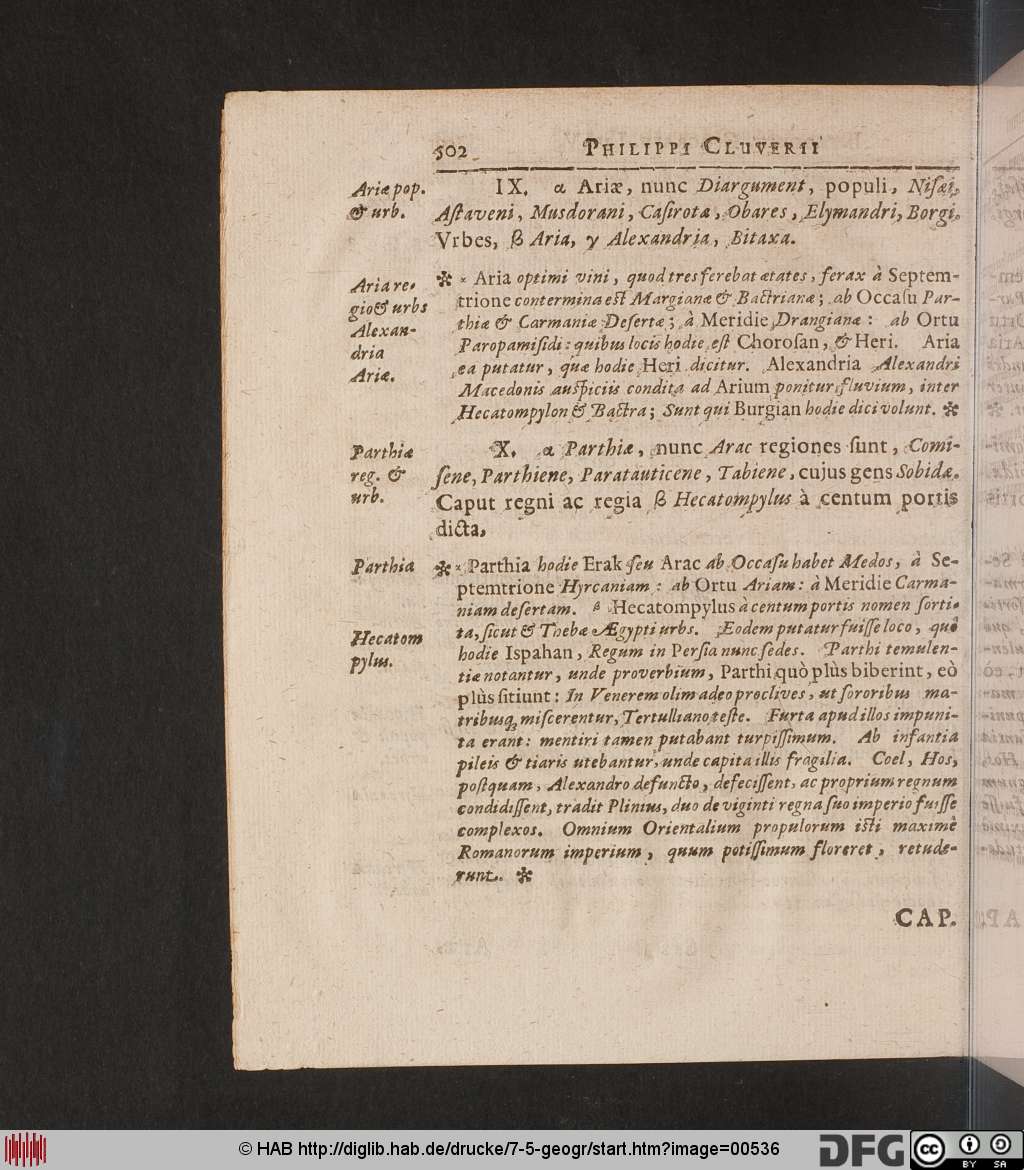 502 PHILIPPI CLUVERII
Ariæ pop.
& urb.
IX. α Ariæ, nunc Diargument, populi, Niſæi,
Aſtaveni, Musdorani, Caſirotæ, Obares, Elymandri, Borgi.
Vrbes, β Aria, γ Alexandria, Bitaxa.
Aria re-
gio & urbs
Alexan-
dria
Ariæ.
✻ α Aria optimi vini, quod tres ferebat ætates, ferax à Septem-
trione contermina eſt Margianæ & Bactrianæ; ab Occaſu Par-
thiæ & Carmaniæ Deſertæ; à Meridie Drangianæ: ab Ortu
Paropamiſidi: quibus locis hodie eſt Choroſan, & Heri. Aria
ea putatur, quæ hodie Heri dicitur. Alexandria Alexandri
Macedonis auſpiciis condita ad Arium ponitur fluvium, inter
Hecatompylon & Bactra; Sunt qui Burgian hodie dici volunt. ✻
Parthiæ
reg. &
urb.
X. α Parthiæ, nunc Arac regiones ſunt, Comi-
ſene, Parthiene, Paratauticene, Tabiene, cujus gens Sobidæ.
Caput regni ac regia β Hecatompylus à centum portis
dicta,
Parthia
✻ α Parthia hodie Erak ſeu Arac ab Occaſu habet Medos, à Se-
ptemtrione Hyrcaniam: ab Ortu Ariam: à Meridie Carma-
niam deſertam. β Hecatompylus à centum portis nomen ſorti-
Hecatom
pylus.
ta, ſicut & Thebæ Ægypti urbs. Eodem putatur fuiſſe loco, quò
hodie Ispahan, Regum in Perſia nunc ſedes. Parthi temulen-
tiæ notantur, unde proverbium, Parthi quò plùs biberint, eò
plùs ſitiunt: In Venerem olim adeo proclives, ut ſororibus ma-
tribusq; miſcerentur, Tertulliano teſte. Furta apud illos impuni-
ta erant: mentiri tamen putabant turpiſſimum. Ab infantia
pileis & tiaris utebantur, unde capita illis fragilia. Coel, Hos,
poſtquam, Alexandro defuncto, defeciſſent, ac proprium regnum
condidiſſent, tradit Plinius, duo de viginti regna ſuo imperio fuiſſe
complexos. Omnium Orientalium propulorum iſti maximè
Romanorum imperium, quum potiſſimum floreret, retude-
runt. ✻
CAP.
© HAB http://diglib.hab.de/drucke/7-5-geogr/start.htm?image=00536
DFG
cc BY SA